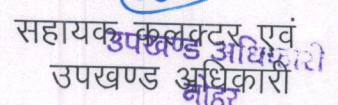 सहायक कलक्टर एवं
उपखण्ड अधिकारी
उपखण्ड अधिकारी
नोहर